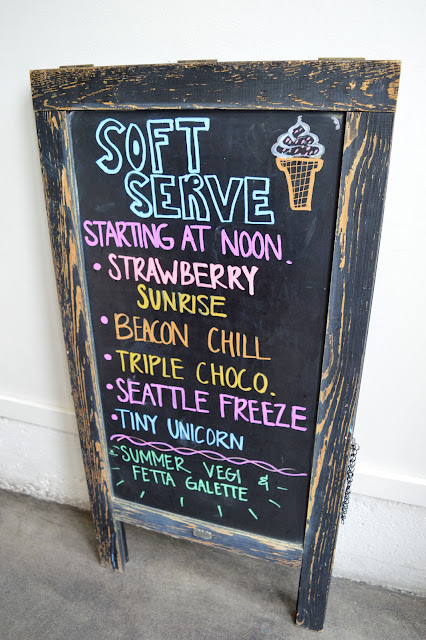 SOFT
SERVE
STARTING AT NOON.
• STRAWBERRY
SUNRISE
• BEACON CHILL
• TRIPLE CHOCO.
• SEATTLE FREEZE
• TINY UNICORN
SUMMER VEGI &
FETTA GALETTE